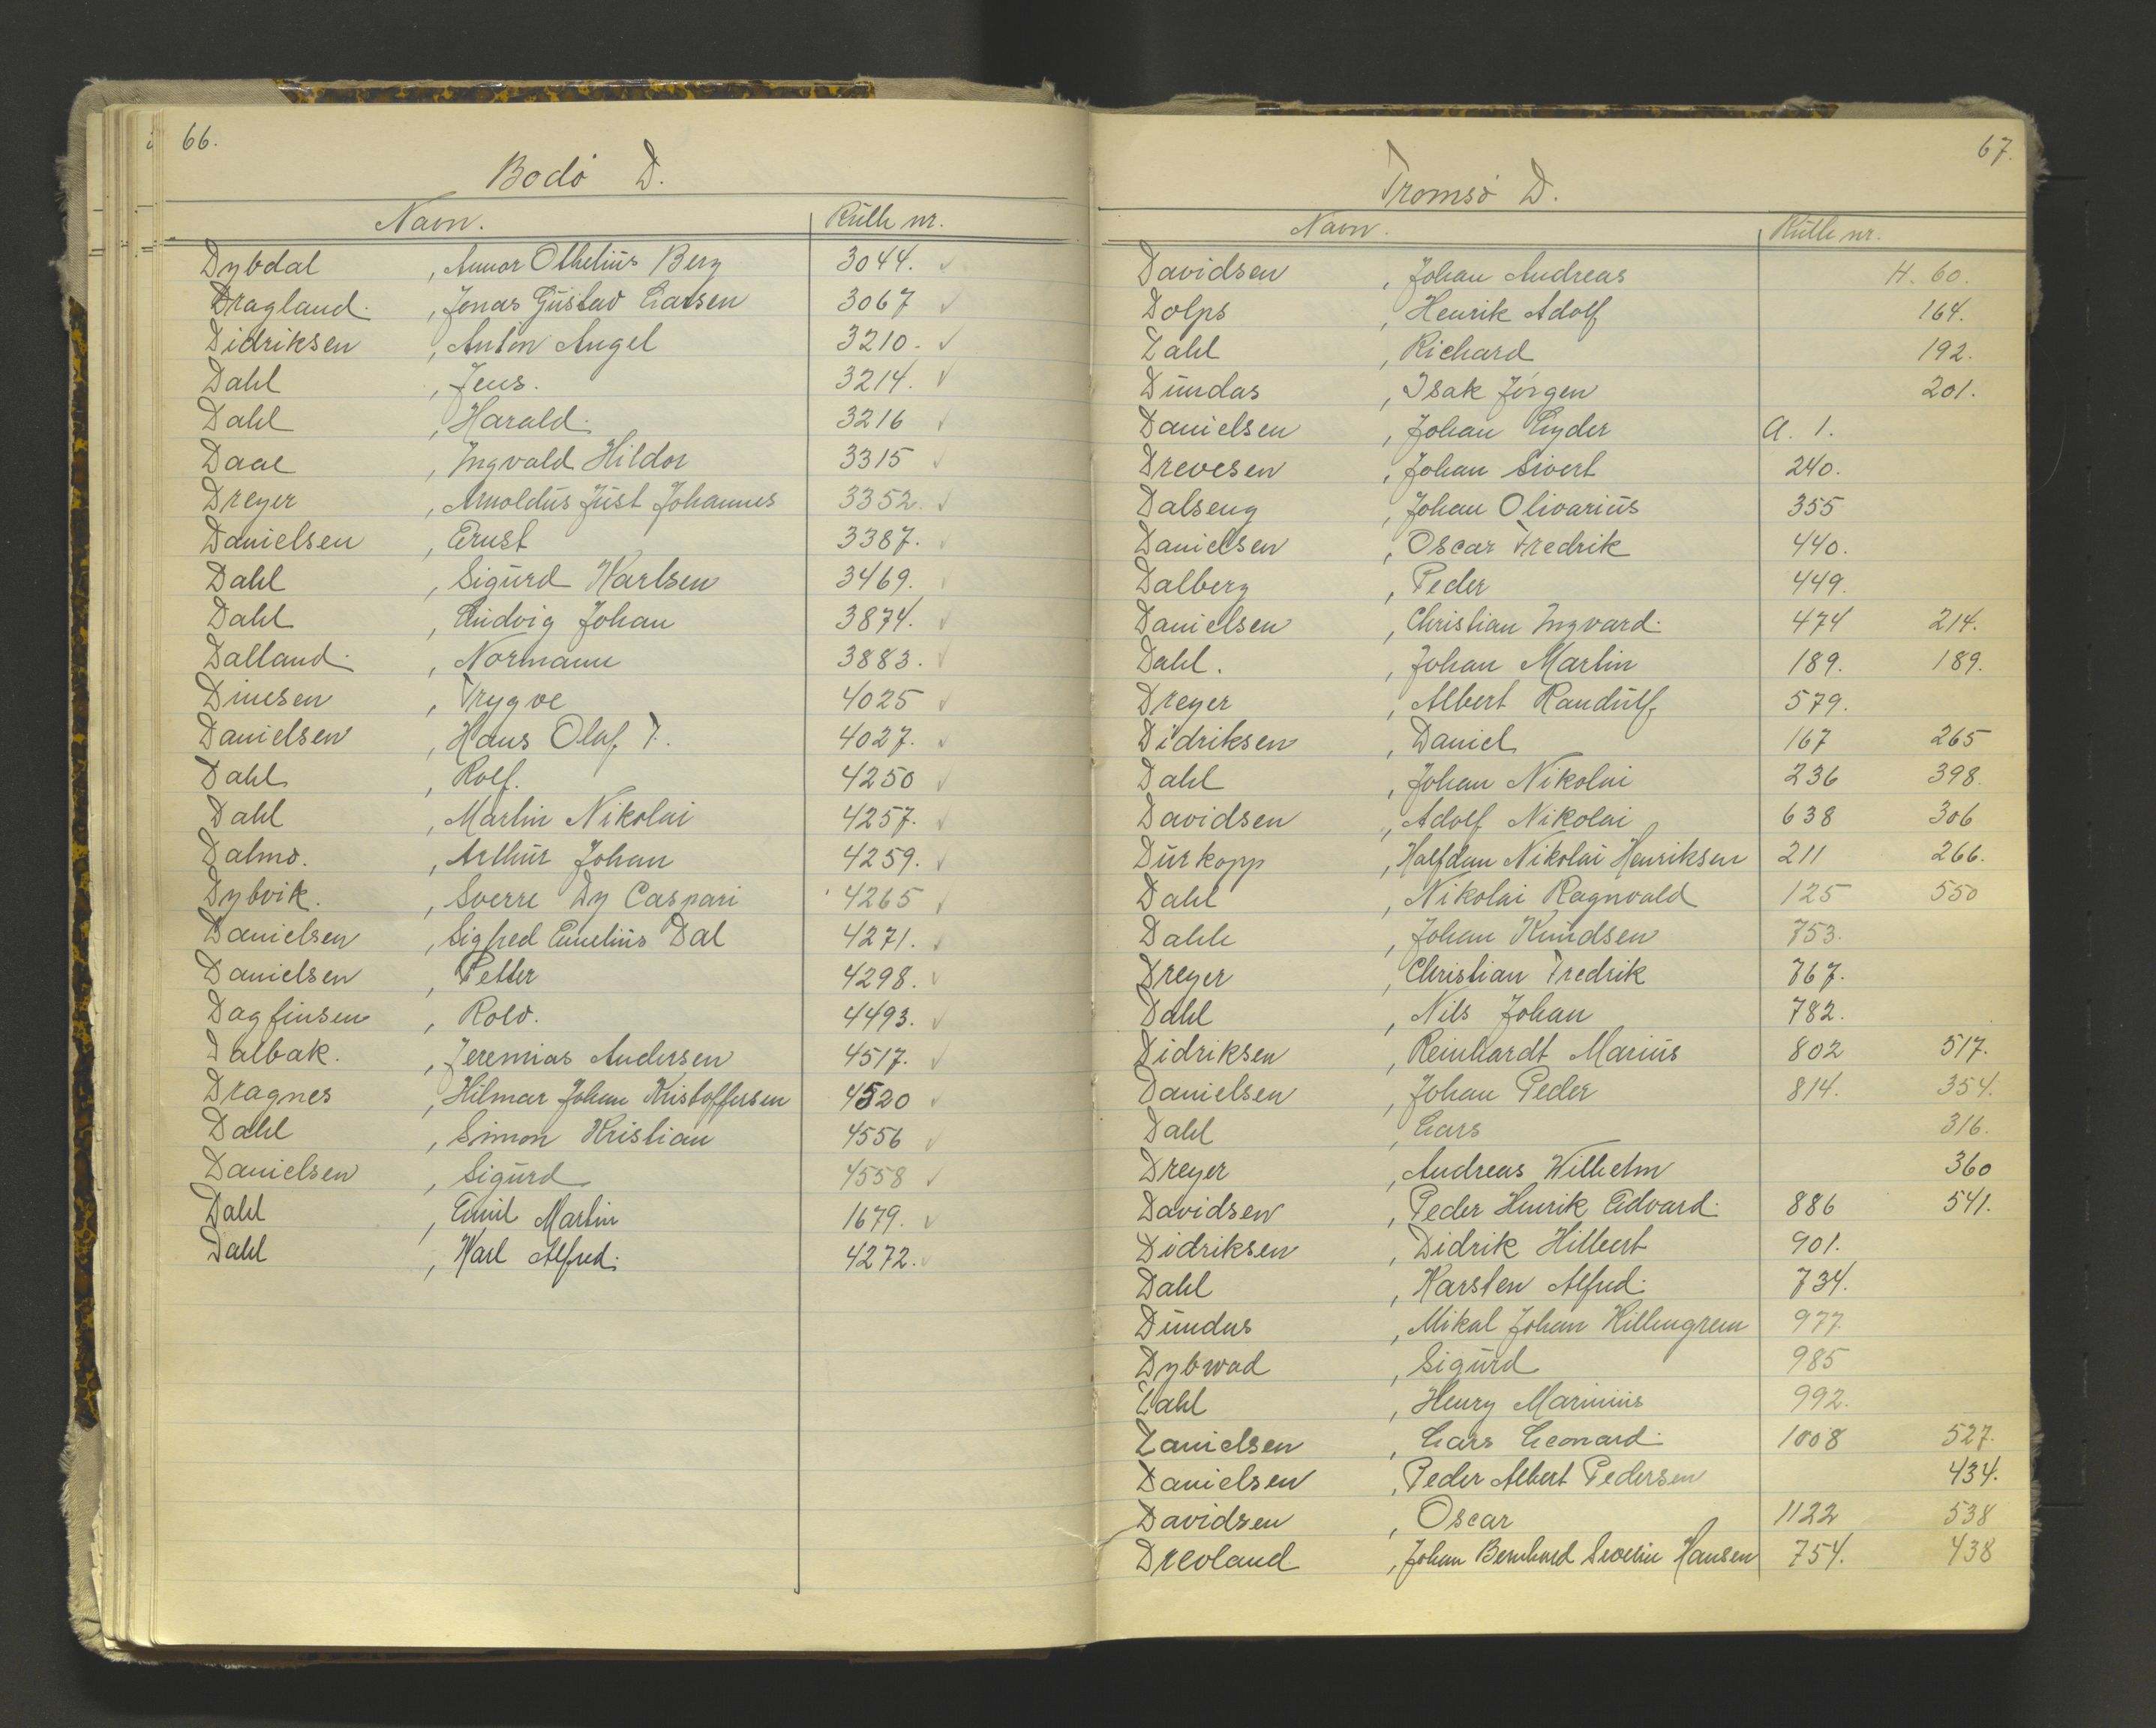 66.
Bodø D.
Navn. Rulle nr.
Dybdal , Annar Othelius Berg 3044. ✓
Dragland. , Jonas Gustav Larsen 3067 ✓
Didriksen , Anton Angel 3210. ✓
Dahl , Jens. 3214. ✓
Dahl , Harald. 3216 ✓
Daae , Ingvald Hildor 3315 ✓
Dreyer , Arnoldus Just Johannes 3352. ✓
Danielsen , Ernst 3387. ✓
Dahl , Sigurd Karlsen 3469. ✓
Dahl , Ludvig Johan 3874. ✓
Dalland. , Normann 3883. ✓
Dinesen , Trygve 4025 ✓
Danielsen , Hans Olaf T. 4027. ✓
Dahl , Rolf. 4250 ✓
Dahl , Martin Nikolai 4257. ✓
Dalmo. , Arthur Johan 4259. ✓
Dybvik. , Sverre Dy Caspari 4265 ✓
Danielsen , Sigfred Emelius Dal 4271. ✓
Danielsen , Petter 4298. ✓
Dagfinsen , Rolv. 4493. ✓
Dalbak. , Jeremias Andersen 4517. ✓
Dragnes , Hilmar Johan Kristoffersen 4520 ✓
Dahl , Simon Kristian 4556 ✓
Danielsen , Sigurd 4558 ✓
Dahl , Emil Martin 1679. ✓
Dahl , Karl Alfred. 4272. ✓
67.
Tromsø D.
Navn. Rulle nr.
Davidsen , Johan Andreas H. 60.
Dolps , Henrik Adolf 164.
Dahl , Richard 192.
Dundas , Isak Jørgen 201.
Danielsen , Johan Lyder A. 1.
Drevesen , Johan Sivert 240.
Dalseng , Johan Olivarius 355
Danielsen , Oscar Fredrik 440.
Dalberg , Peder 449.
Danielsen , Christian Ingvard. 474 214.
Dahl. , Johan Martin 189. 189.
Dreyer , Albert Randulf 579.
Didriksen , Daniel 167 265
Dahl , Johan Nikolai 236 398.
Davidsen , Adolf Nikolai 638 306
Durkopp , Halfdan Nikolai Henriksen 211 266.
Dahl , Nikolai Ragnvald 125 550
Dahle , Johan Knudsen 753.
Dreyer , Christian Fredrik 767.
Dahl , Nils Johan 782.
Didriksen , Reinhardt Marius 802 517.
Danielsen , Johan Peder 814. 354.
Dahl , Lars 316.
Dreyer , Andreas Wilhelm 360
Davidsen , Peder Henrik Edvard. 886 541.
Didriksen , Didrik Hilbert 901.
Dahl , Karsten Alfred. 734.
Dundas , Mikal Johan Killengreen 977.
Dybwad , Sigurd 985
Dahl , Henry Marinius 992.
Danielsen , Lars Leonard. 1008 527.
Danielsen , Peder Albert Pedersen 434.
Davidsen , Oscar 1122 538
Drevland. , Johan Bernhard Severin Hansen 754. 438